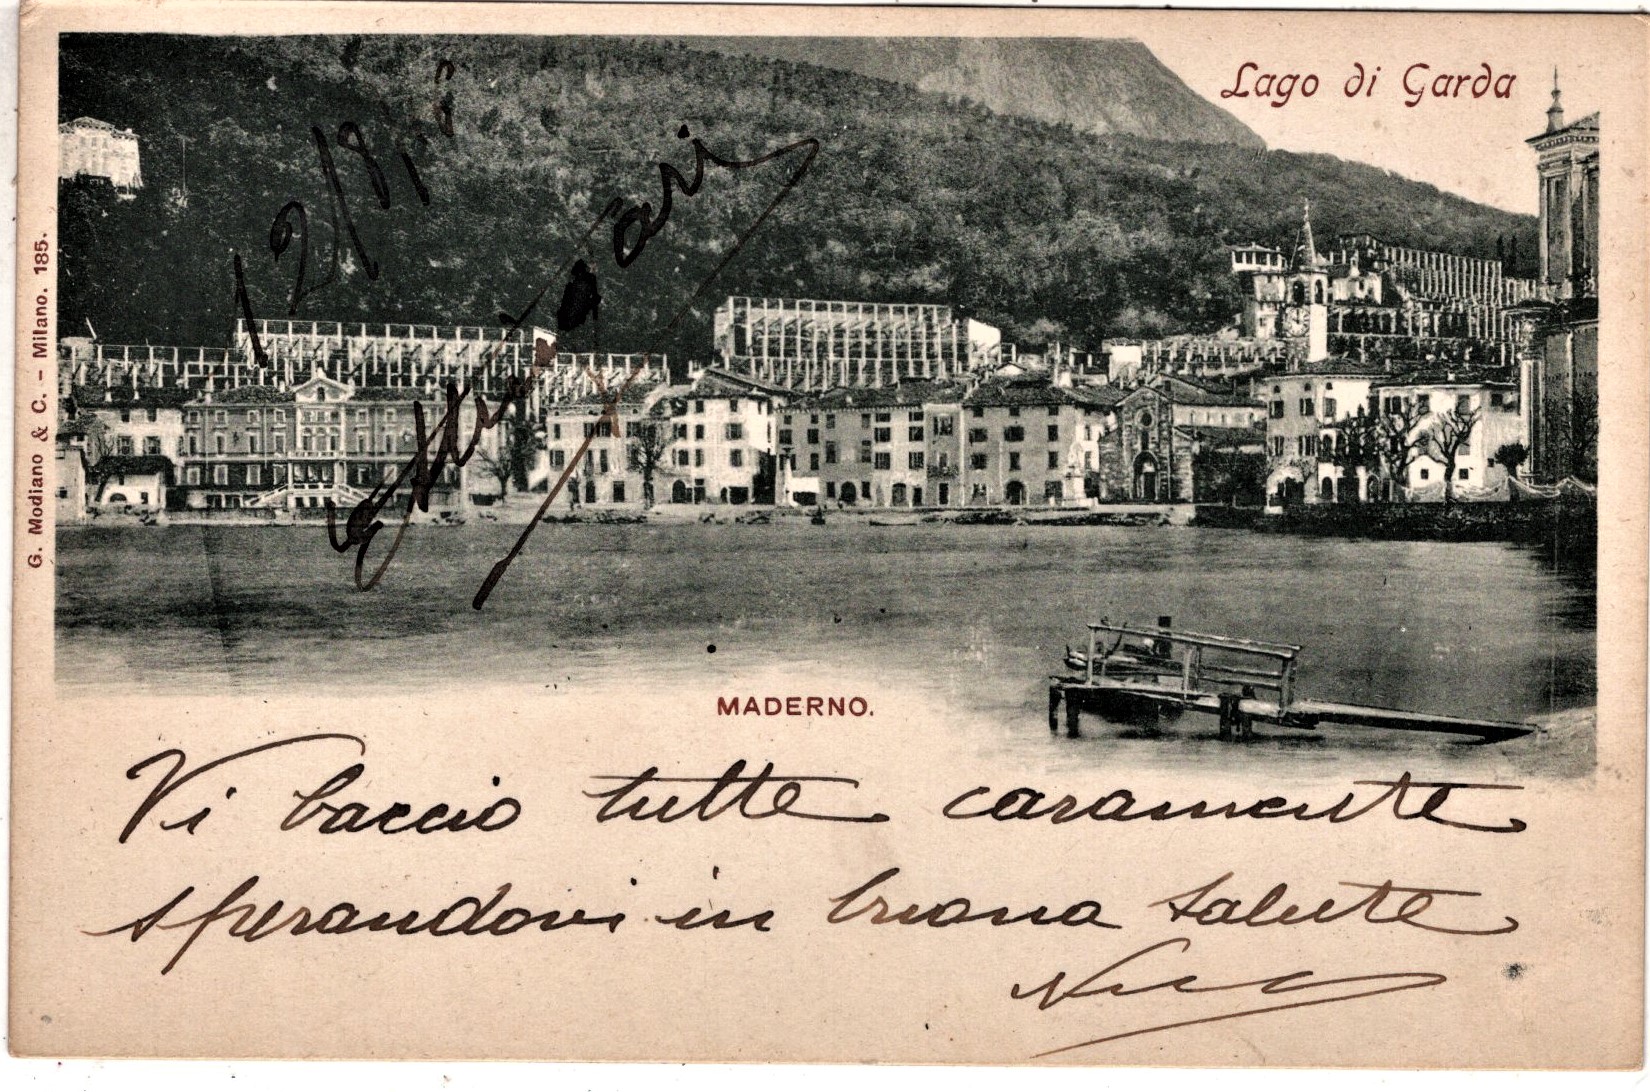 Lago di Garda
G. Modiano & C. - Milano. 185.
MADERNO.
Vi baccio tutte caramente
sperandovi in buona salute